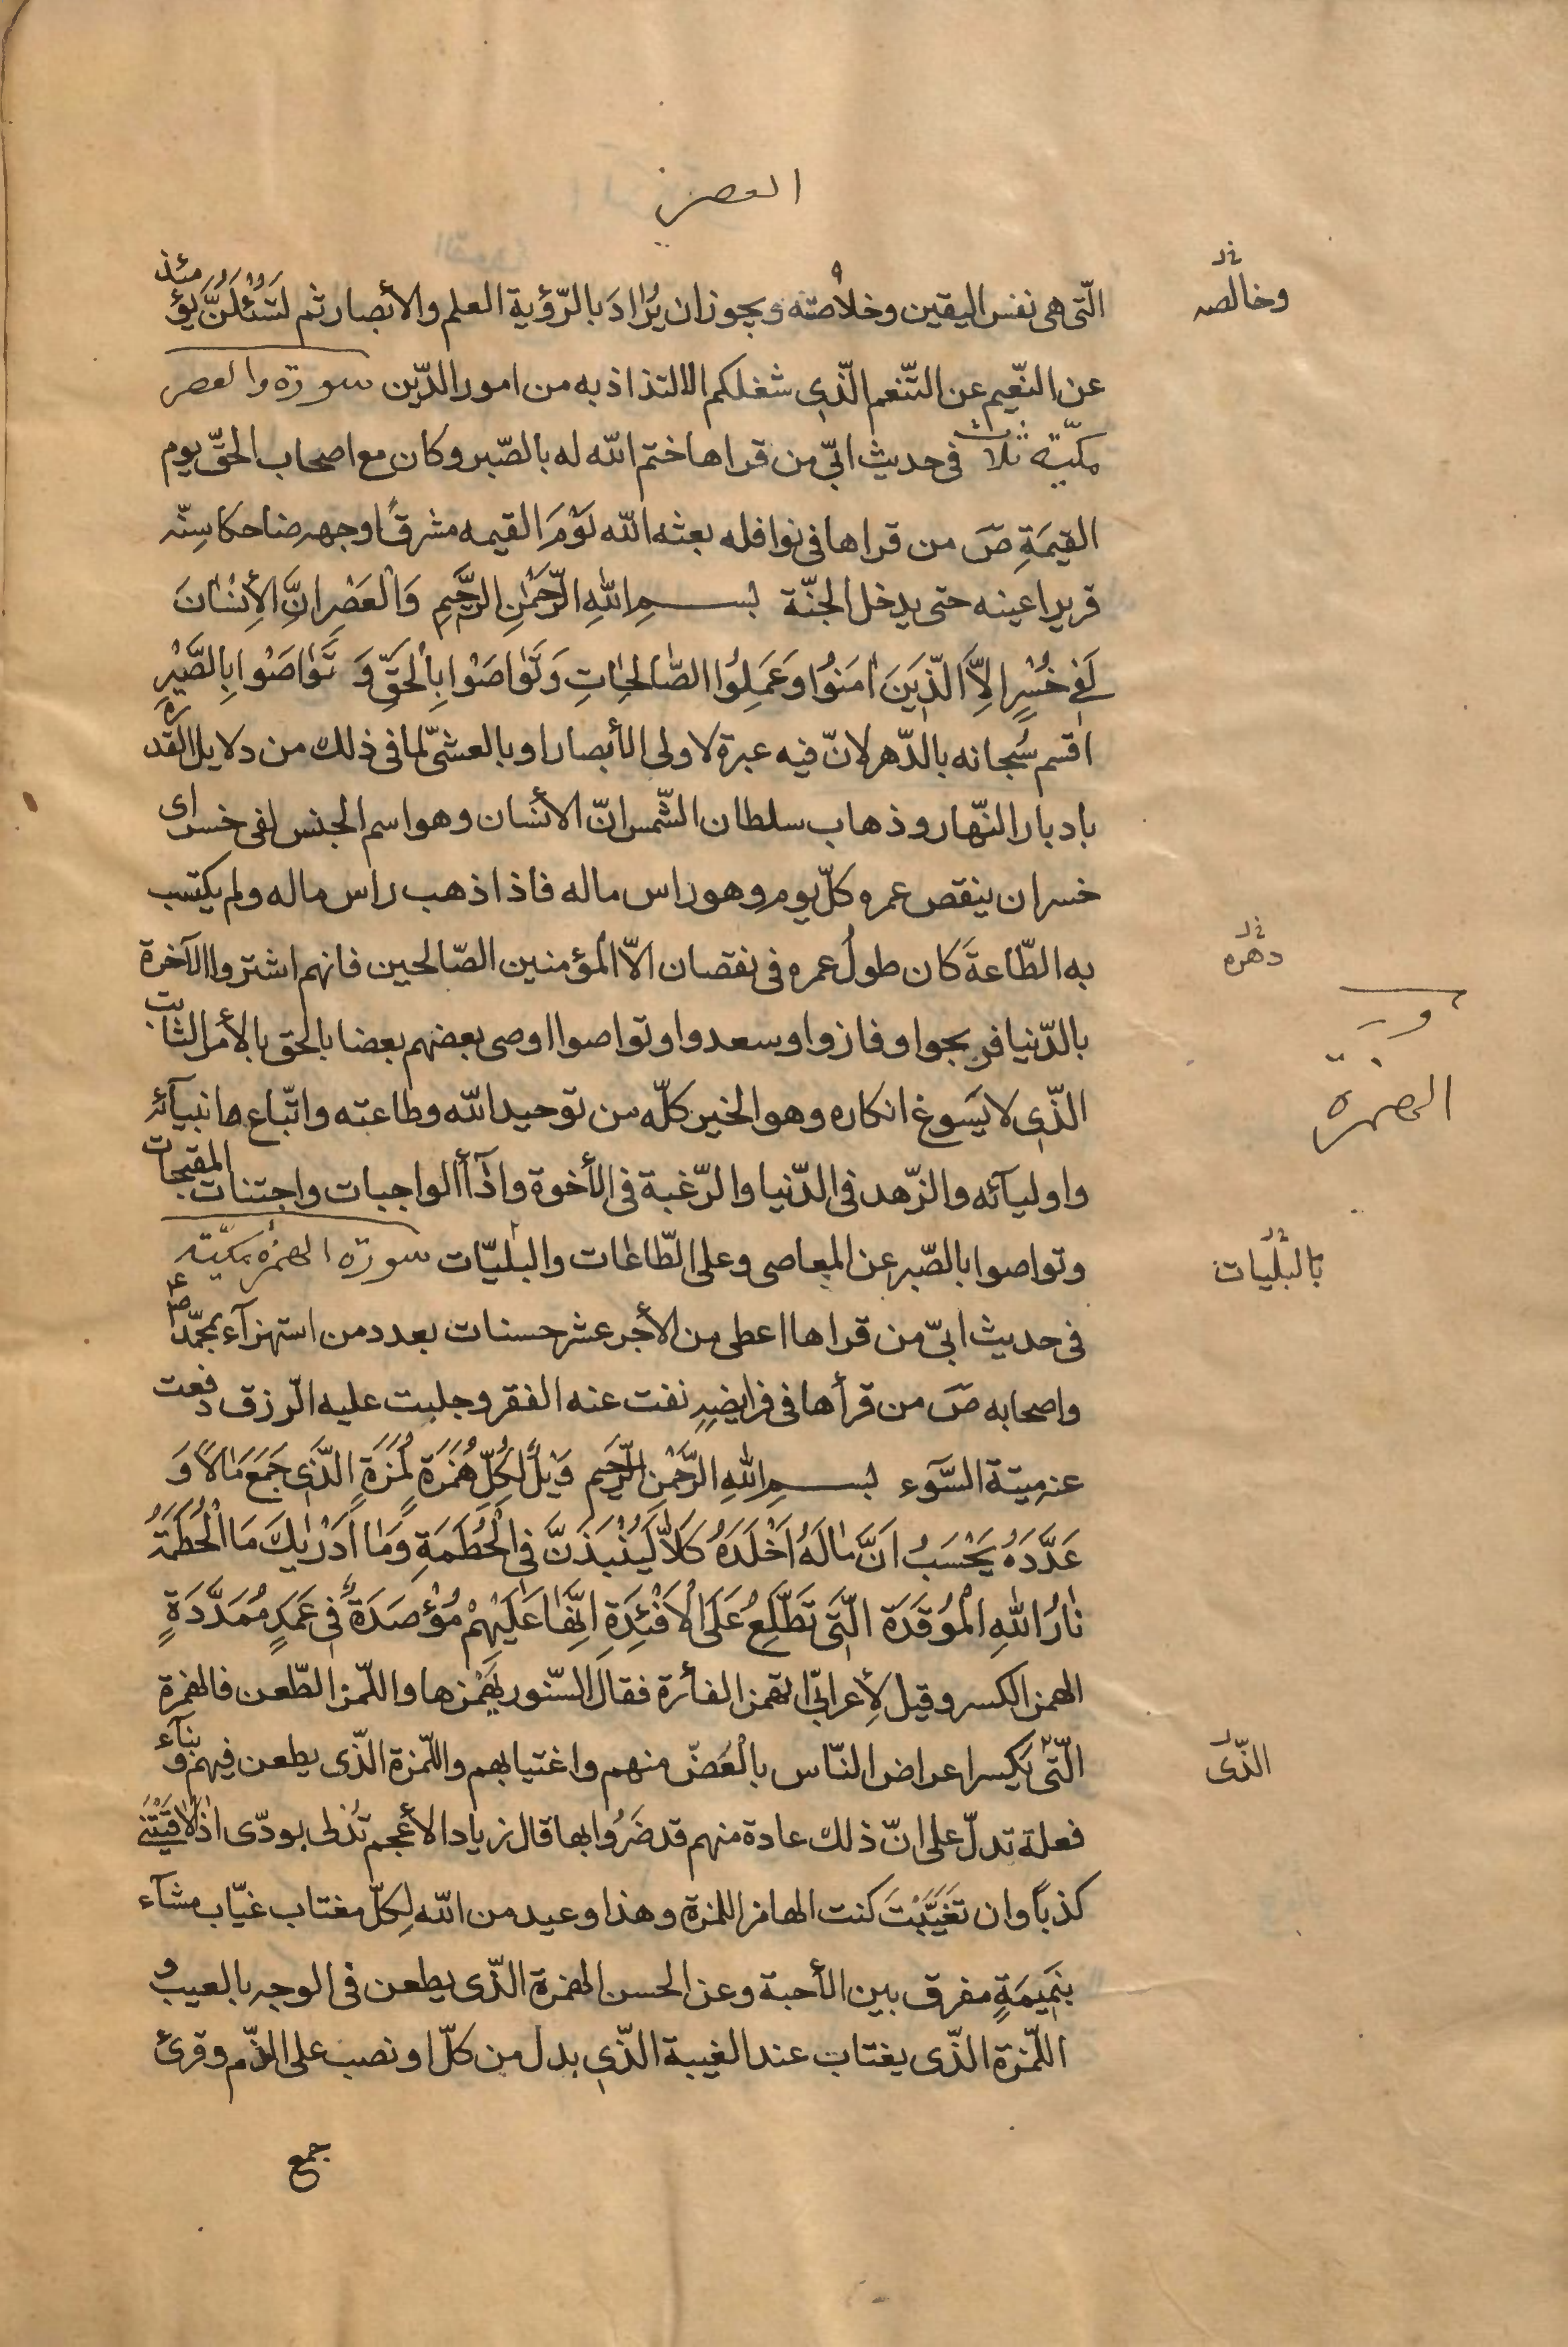 العصر
الّتى هى نفس اليقين وخلاصته ويجوز ان يُرٰادَ بالرّؤية العلم والأبصار ثم لَتُسْئَلُنَّ يؤمئذ
وخالصه
عن النّعيم عن التّنعم الّذى شغلكم الالتذاذ به من امور الدّين سورة والعصر
مكيّة ثلاث فى حديث ابىّ من قراها ختم الله له بالصّبر وكان مع اصحاب الحقّ يوم
القيمَةِ صَ من قراها فى نوافله بعثه الله يَوْمَ القيمه مشرقًا وجهه ضاحكا سِنّه
قريرا عينه حتى يدخل الجنّة بسمِ اللهِ الرَّحْمٰنِ الرَّحيمِ وَالْعَصْرِ انَّ الأِنْسٰانَ
لَفى خُسْرٍ الِاَّ الَّذينَ اٰمَنُوا وَعَمِلُوا الصّٰالِحٰاتِ وَتَوٰاصَوْا بِالْحَقِّ وَ تَوٰاصَوْا بِالصَّبْرِ
اقسم سُبحانه بالدّهر لانّ فيه عبرة لاولى الأبصار او بالعشىّ لما فى ذلك من دلايل القدرة
بادبار النّهار وذهاب سلطان الشّمس انّ الأنسان وهو اسم الجنس لفى خسر اى
خسران ينقص عمره كلّ يوم وهو راس ماله فاذا ذهب راس ماله ولم يكتسب
به الطّاعةَ كان طولُ عمره فى نقصان الاّ المؤمنين الصّالحين فانهم اشتروا الآخرة
دهره
بالدّنيا فربحوا وفازوا وسعدوا وتواصوا اوصى بعضهم بعضا بالحق بالأمر الثابت
الهمزة
الذّى لا يَسَوغ انكاره وهو الخير كلّه من توحيد الله وطاعته واتّباع انبيآئه
واوليآئه والزّهد فى الدّنيا والرّغبة فى الأخرة واذآأ الواجبات واجتناب المقبحات
وتواصوا بالصّبر عن المعاصى وعلى الطّاعات والبليّات سورة الهمزه مكيّة
بالبليات
فى حديث ابىّ من قراها اعطى من الأجر عشر حسنات بعدد من استهزآء بمحمّد ص
واصحابه صَ من قرأها فى فرايضهِ نفت عنه الفقر وجلبت عليه الرّزق دفعت
عنه ميتة السَّوء بسمِ اللهِ الرَّحْمٰنِ الرَّحيمِ وَيْلٌ لِكُلِّ هُمَزَةٍ لُمَزَةٍ الَّذى جَمَعَ مٰالاً وَ
عَدَّدَهُ يَحْسَبُ اَنَّ مٰالَهُ اَخْلَدَهُ كَلاّٰ لَيُنْبَذَنَّ فِى الْحُطَمَةِ وَمٰا اَدْرٰيكَ مَا الْحُطَمَةُ
نٰارُ اللهِ الْمُوقَدَةُ الَّتى تَطَّلِعُ عَلَى الْاَفْئِدَةِ اِنَّهٰا عَلَيْهِمْ مُؤْصَدَةٌ فى عَمَدٍ مُمَدَّدَةٍ
الهمز الكسر وقيل لأِعرابىّ اتهمز الفأرة فقال السّنور يَهمزها واللّمز الطّعن فالهمزة
الّتى يكسر اعراض النّاس بالْغَضّ منهم واغتيابهم واللّمزة الذّى يطعن فيهم وبنآء
الذّى
فعلة تدلّ على انّ ذلك عادة منهم قد ضَرُوا بها قال زياد الأعجم تدلى بودّى اذا لاقَيْتَنى
كذباً وان تَغَيَّبْتَ كنت الهامز اللمزة وهذا وعيد من الله لِكلّ مغتاب غيّاب مشآء
بنَميمَةٍ مفرق بين الأحبة وعن الحسن الهمزة الذّى يطعن فى الوجه بالعيب و
اللّمزة الذّى يغتاب عند الغيبة الذّى بدل من كلّ او نصب على الذّم وقرئ
جمع